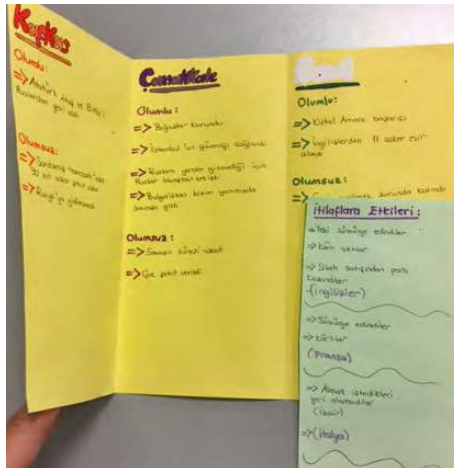 Kafkas
Olumlu:
=> Atatürk Muş ve Bitlis'i
Ruslardan geri aldı
Olumsuz:
=> Sarıkamış
90 bin asker şehit oldu
=> Rusya'ya gidilemedi
Çanakkale
Olumlu:
=> Boğazlar korundu
=> İstanbul'un güvenliği sağlandı
=> Ruslara yardım gitmediği için
Ruslar savaştan çekildi
=> Bulgaristan bizim yanımızda
savaşa girdi
Olumsuz:
=> Savaşın süresi uzadı
=> Çok şehit verildi
Olumlu:
=> Kutul Amare başarısı
=> İngilizlerden 11 asker esir
alındı
Olumsuz:
=> zorunda kalındı
İtilaflara Etkileri:
=> Yeni sömürge edindiler
=> Kârlı çıktılar
=> Silah satışından para
kazandılar
(ingilizler)
=> Sömürge edindiler
=> Kârlılar
(Fransa)
=> Ancak istedikleri
yeri alamadılar
(izmir)
=> (italya)